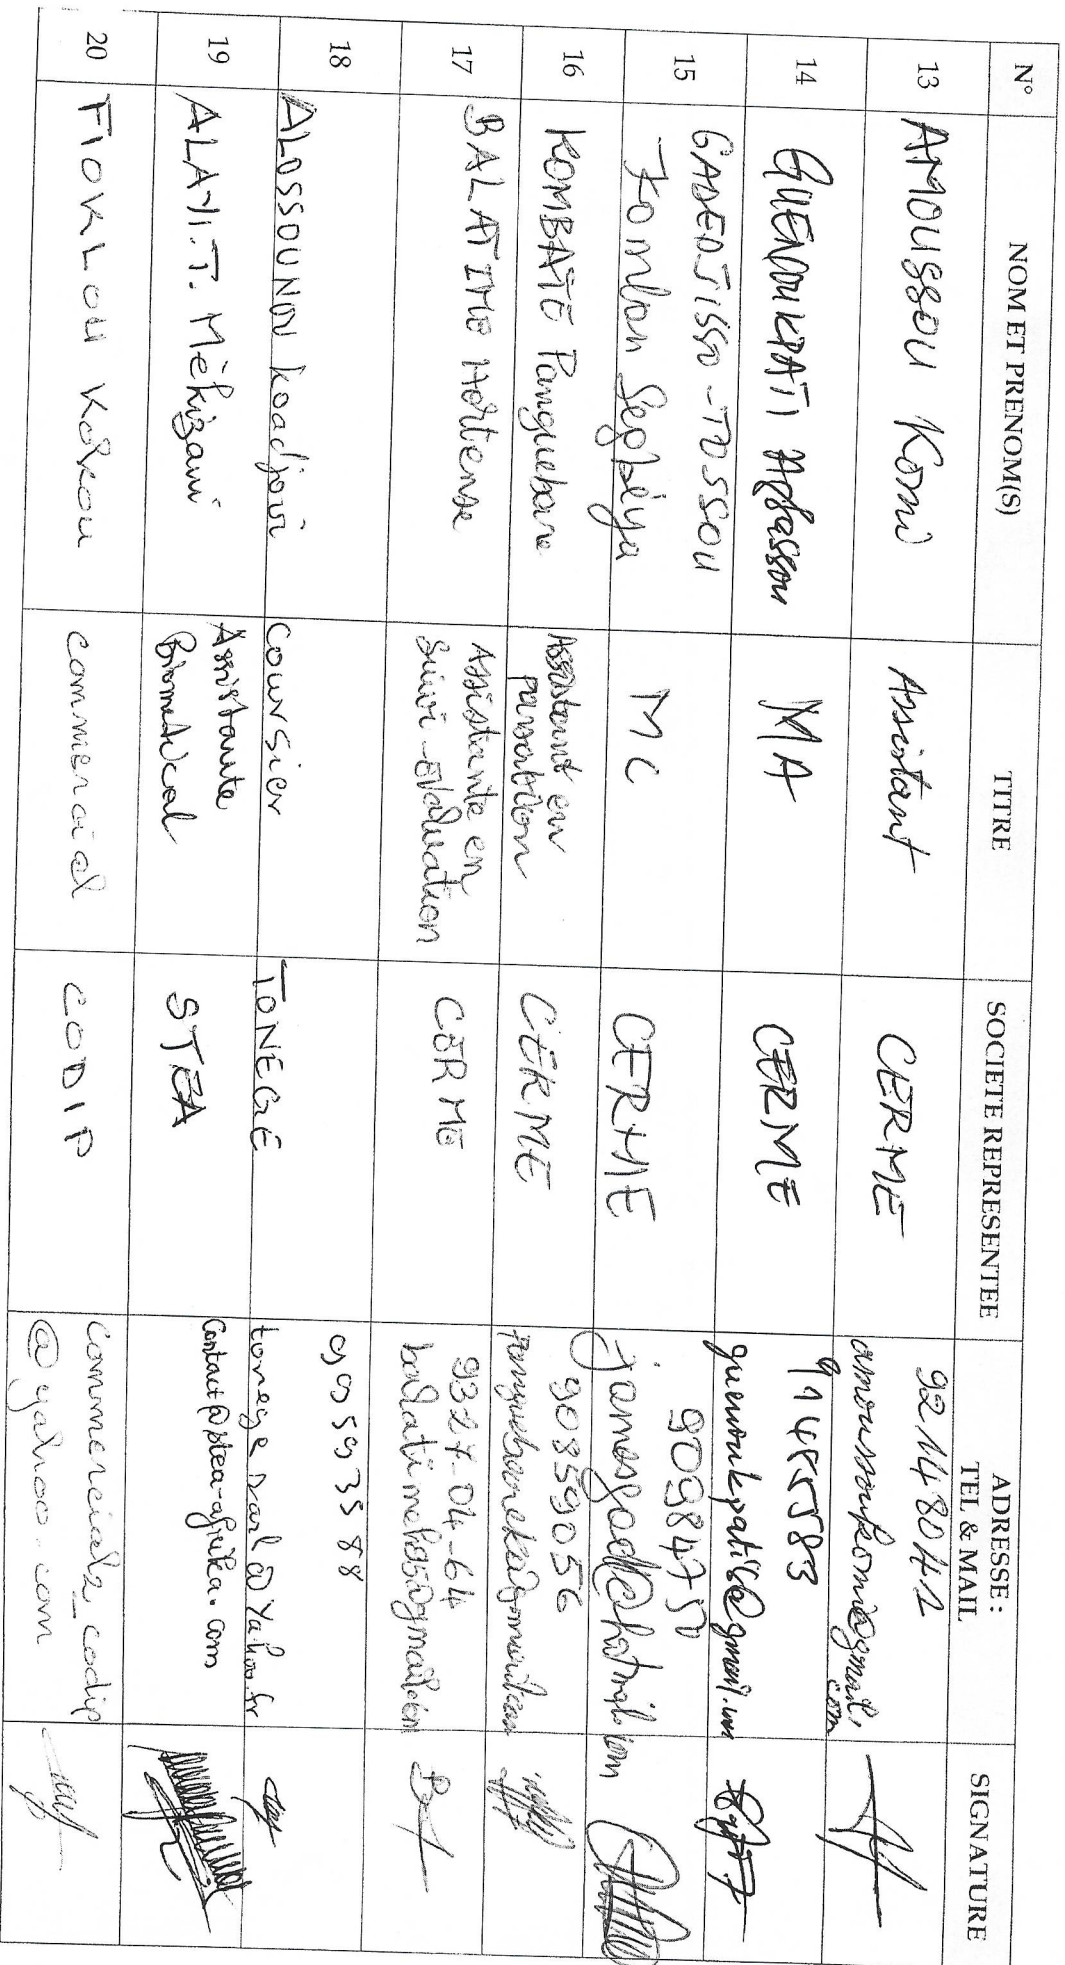 N° NOM ET PRENOM(S) TITRE SOCIETE REPRESENTEE ADRESSE : TEL & MAIL SIGNATURE
13 AMOUSSOU Komi Assistant CERME 92148042
amoussoukomi@gmail.com
14 GUENOUKPATI Agbassou MA CERME 91485583
guenoukpatis@gmail.com
15 GADEDJISSO-TOSSOU Komlan Segbéya MC CERME 90984750
jamesgad@hotmail.com
16 KOMBATE Panguebane Assistant en passation CERME 90959056
17 BALATIMO Hortense Assistante en Suivi-Evaluation CERME 9327-04-64
18 ALOSSOUNOU koadjovi Coursier TONEGE 99593588
tonege sarl@yahoo.fr
19 ALAYI.T. Mèhizawi Assistante Biomedical STEA
Contact@stea-afrika.com
20 FIOKLOU Kokou commercial CODIP commerciale_codip
@yahoo.com